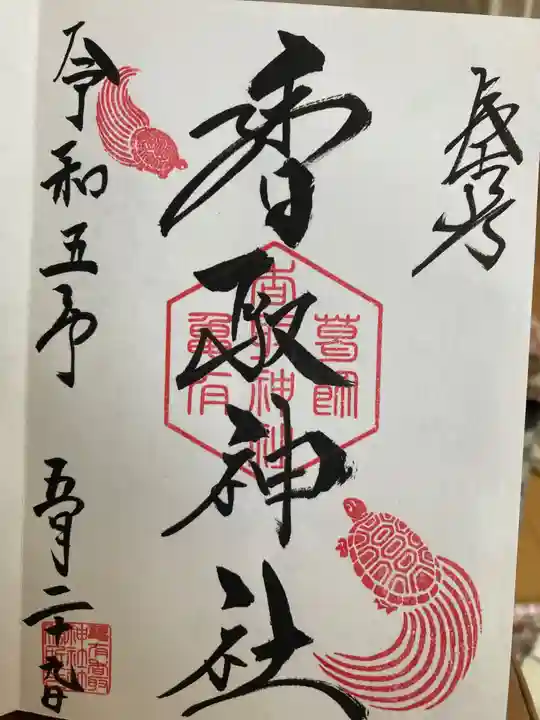 奉拝
香取神社
葛飾
香取神社
亀有
令和五年 五月二十九日
亀有香取神社